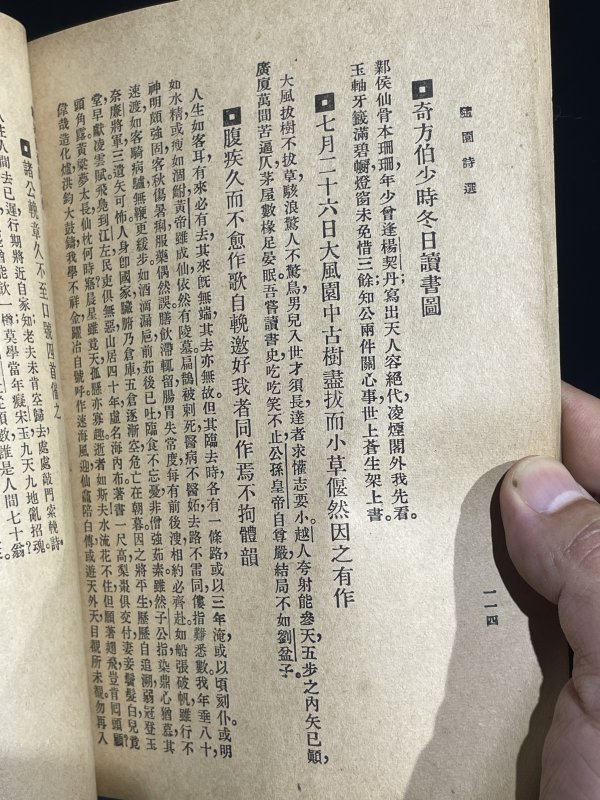 隨園詩選
奇方伯少時冬日讀書圖
鄴侯仙骨本珊珊，年少曾逢楊契丹；寫出天人容絕代，凌煙閣外我先看。
玉軸牙籤滿碧幮，燈窗未免惜三餘；知公兩件關心事：世上蒼生架上書。
七月二十六日大風園中古樹盡拔而小草偃然因之有作
大風拔樹不拔草，駭浪驚人不驚鳥；男兒入世才須長，達者求懽志要小。越人夸射能參天，五步之內矢已顚，
廣廈萬間苦逼仄，茅屋數椽足晏眠。吾嘗讀書史，吃吃笑不止；公孫皇帝自尊嚴，結局不如劉盆子。
腹疾久而不愈作歌自輓邀好我者同作焉不拘體韻
人生如客耳，有來必有去。其來旣無端，其去亦無故。但其臨去時，各有一條路：或以三年淹，或以頃刻仆，或明
如水精，或瘦如涸鮒。黃帝雖成仙，依然有陵墓，扁鵲被刺死，醫病不醫妬。去路不雷同，僂指難悉數。我年垂八十，
神明頗強固。客秋傷暑痢，服藥偶然誤，膳飲滯輒留，腸胃失常度。每有前後溲，相約必齊赴。如船張破帆，雖行不
速渡；如客騎病驢，無鞭更緩步；如酒滴漏卮，前茹後已吐。臨食不忘憂，非僧強茹素。雖然子公指，染鼎心猶慕；其
奈廉將軍，三遺矢可怖。人身卽國家，臟腑乃倉庫；五倉逐漸空，危亡在朝暮。因之將平生，歷歷自追溯：弱冠登玉
堂，早獻凌雲賦；飛舃到江左，民吏俱無惡；山居四十年，虛名海內布；著書一尺高，梨棗俱交付；妻妾鬢髮白，兒竟
頭角露。黃粱夢太長，仙枕何時寤？晨星雖竟天，孤懸亦寡趣。逝者如斯夫，水流花不住；但願著翅飛，豈肯回頭顧？
偉哉造化爐，洪鈞大鼓鑄；我學不祥金，躍冶自號呼。作速海風迎，仙龕陪白傅；或遊天外天，目覩所未覩；勿再入
一一四
諸公輓章久不至口號四首催之
久住人間去已遲，行期將近自家知；老夫未肯空歸去，處處敲門索輓詩。
莫學當年癡宋玉，九天九地亂招魂。